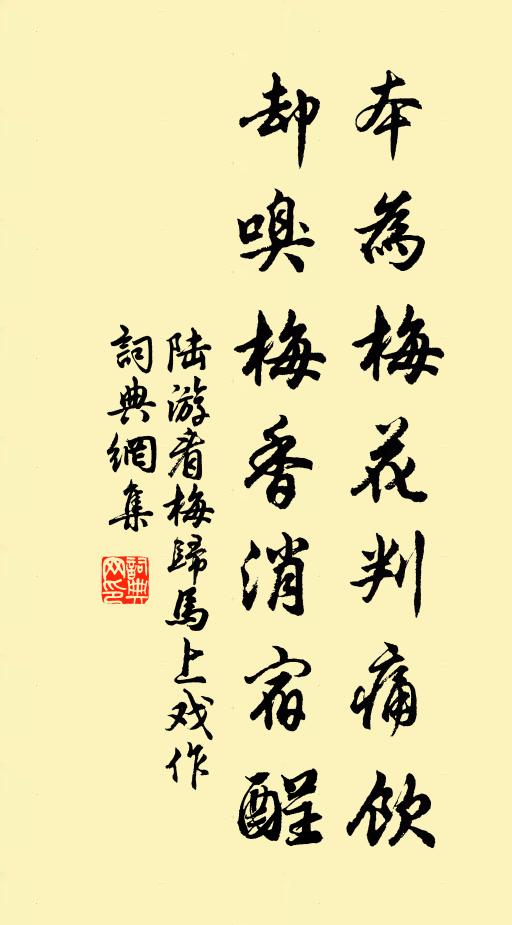 本為梅花判痛飲
却嗅梅香消宿酲
陆游看梅歸馬上戏作
詞典網集
詞典网印